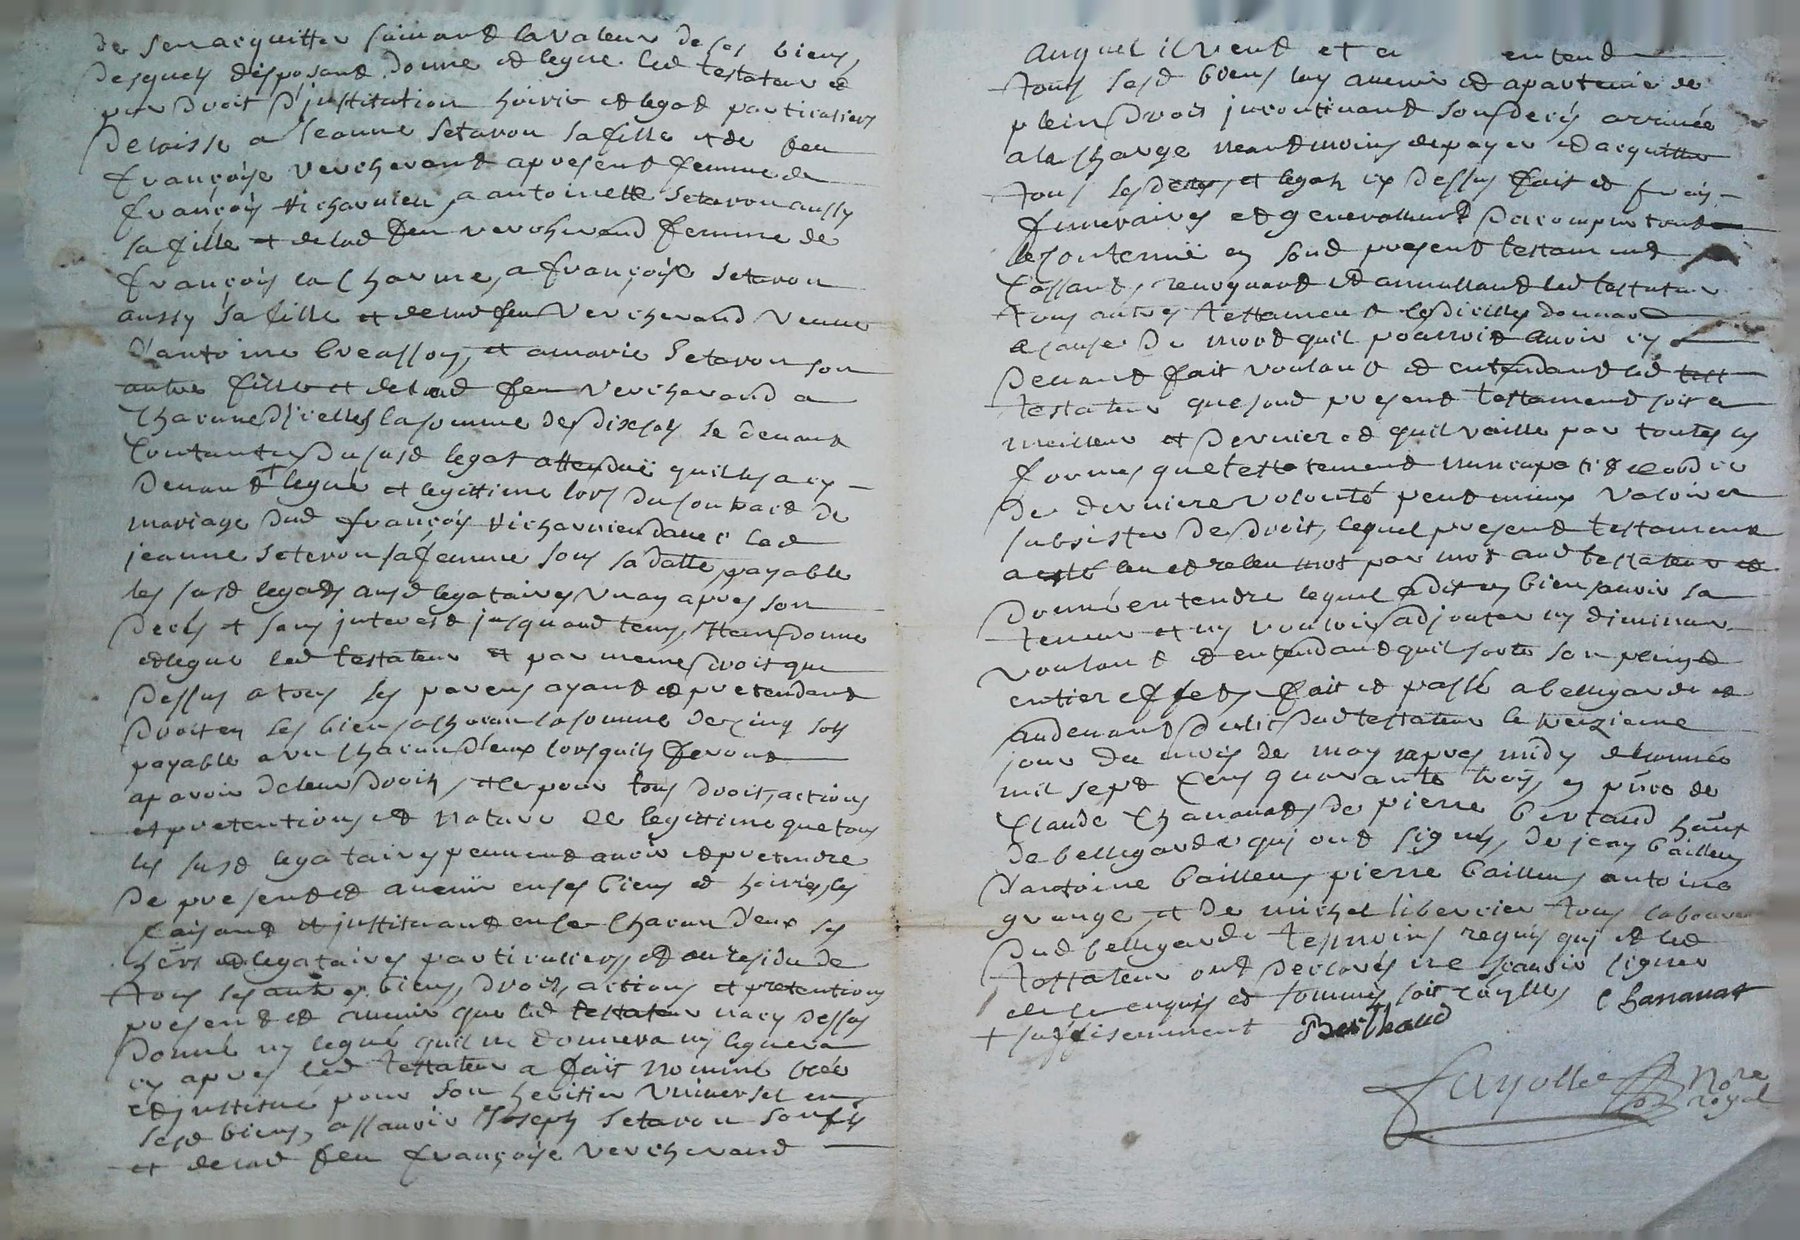 de s'en acquitter suivant la valeur de ses biens,
desquels disposant donne et legue led testateur et
par droit d'justitution hoirie et legat particuliers
delaisse a Jeanne Setaron sa fille et de feu
françoise Vercherand apresent femme de
françois Vicharnieu, a antoinette Setaron aussy
sa fille et delad feu Vercherand femme de
françois la Charme, a françoise Setaron
aussy sa fille et delad feu Vercherand Veuve
d'antoine breasson, et a marie Setaron son
autre fille et delad feu Vercherand a
Chacune d'icelles la somme de dix sols se devant
Contanter du susd legat attendu quil les a cy
devant legué et legittime lors du contract de
mariage dud françois Vicharnieu avec lad
jeanne Seteron sa femme sous sa datte, payable
les susd legats ausd legataires Un an apres son
deces et sans interest jusquaud tems, Item donne
et legue led testateur et par meme droit que
dessus a tous les parens ayant et pretendant
droit en ses biens a chacun la somme de cinq sols
payable a un Chacun d'eux lorsquils feront
aparoir de leurs droits, et ce pour tous droit, actions
et pretentions et nature de legittime que tous
les susd legataires peuvent avoir et pretendre
de present et avenir en ses biens et hoiries, les
faisant et justituant en ce Chacun d'eux ses
hers et legataires particuliers, et au residu de
tous ses autres biens, droits, actions et pretentions
present et avenir que led testateur n'a cy dessus
donné ny legué quil ne donnera ny leguera
cy apres led testateur a fait nommé créé
et justitué pour son heritier Universel en
sesd biens, assavoir Joseph Setaron son fils
et delad feu françoise Vercherand
auquel il veut et entend
tous sesd biens luy avenir et apartenir de
plein droit jncontinant son deces arrivée
a la Charge neantmoins de payer et acquitter
tous les dettes et legats cy dessus fait et frais
funeraires et generallement d'acomplir tout
le Contenue en sond present testament
Cassant, revoquant et annullant led testateur
tous autres testament Codicilles donnant
a cause de mort quil pourroit avoir cy
devant fait voulant et entendant led test
testateur que sond present testament soit le
meilleur et dernier et quil vaille par toutes les
formes que testatement nuncupatif et ordre
de derniere volonté peut mieux valoir et
subsister de droit, lequel present testament
a esté leu et releu mot par mot aud testateur et
donné entendre lequel a dit en bien savoir sa
teneur et ny vouloir adjouter ny diminuer
voulant et entendant quil sorte son plein et
entier effets, fait et passé a bellegarde et
audevant du lit dud testateur le treizieme
jour du mois de may apres midy de l'année
mil sept Cens quarante trois, en pñce de
Claude Chananat, de pierre bertaud hants
de bellegarde qui ont signés, de jean bailleux
d'antoine bailleux, pierre bailleux, antoine
grange et de michel libercier tous laboureurs
dud bellegarde tesmoins requis qui et led
testateur ont declarés ne sçavoir signer
de ce enquis et sommés soit raylles Chananat
+ suffisemment Berthaud
Fayolle Nore
royal